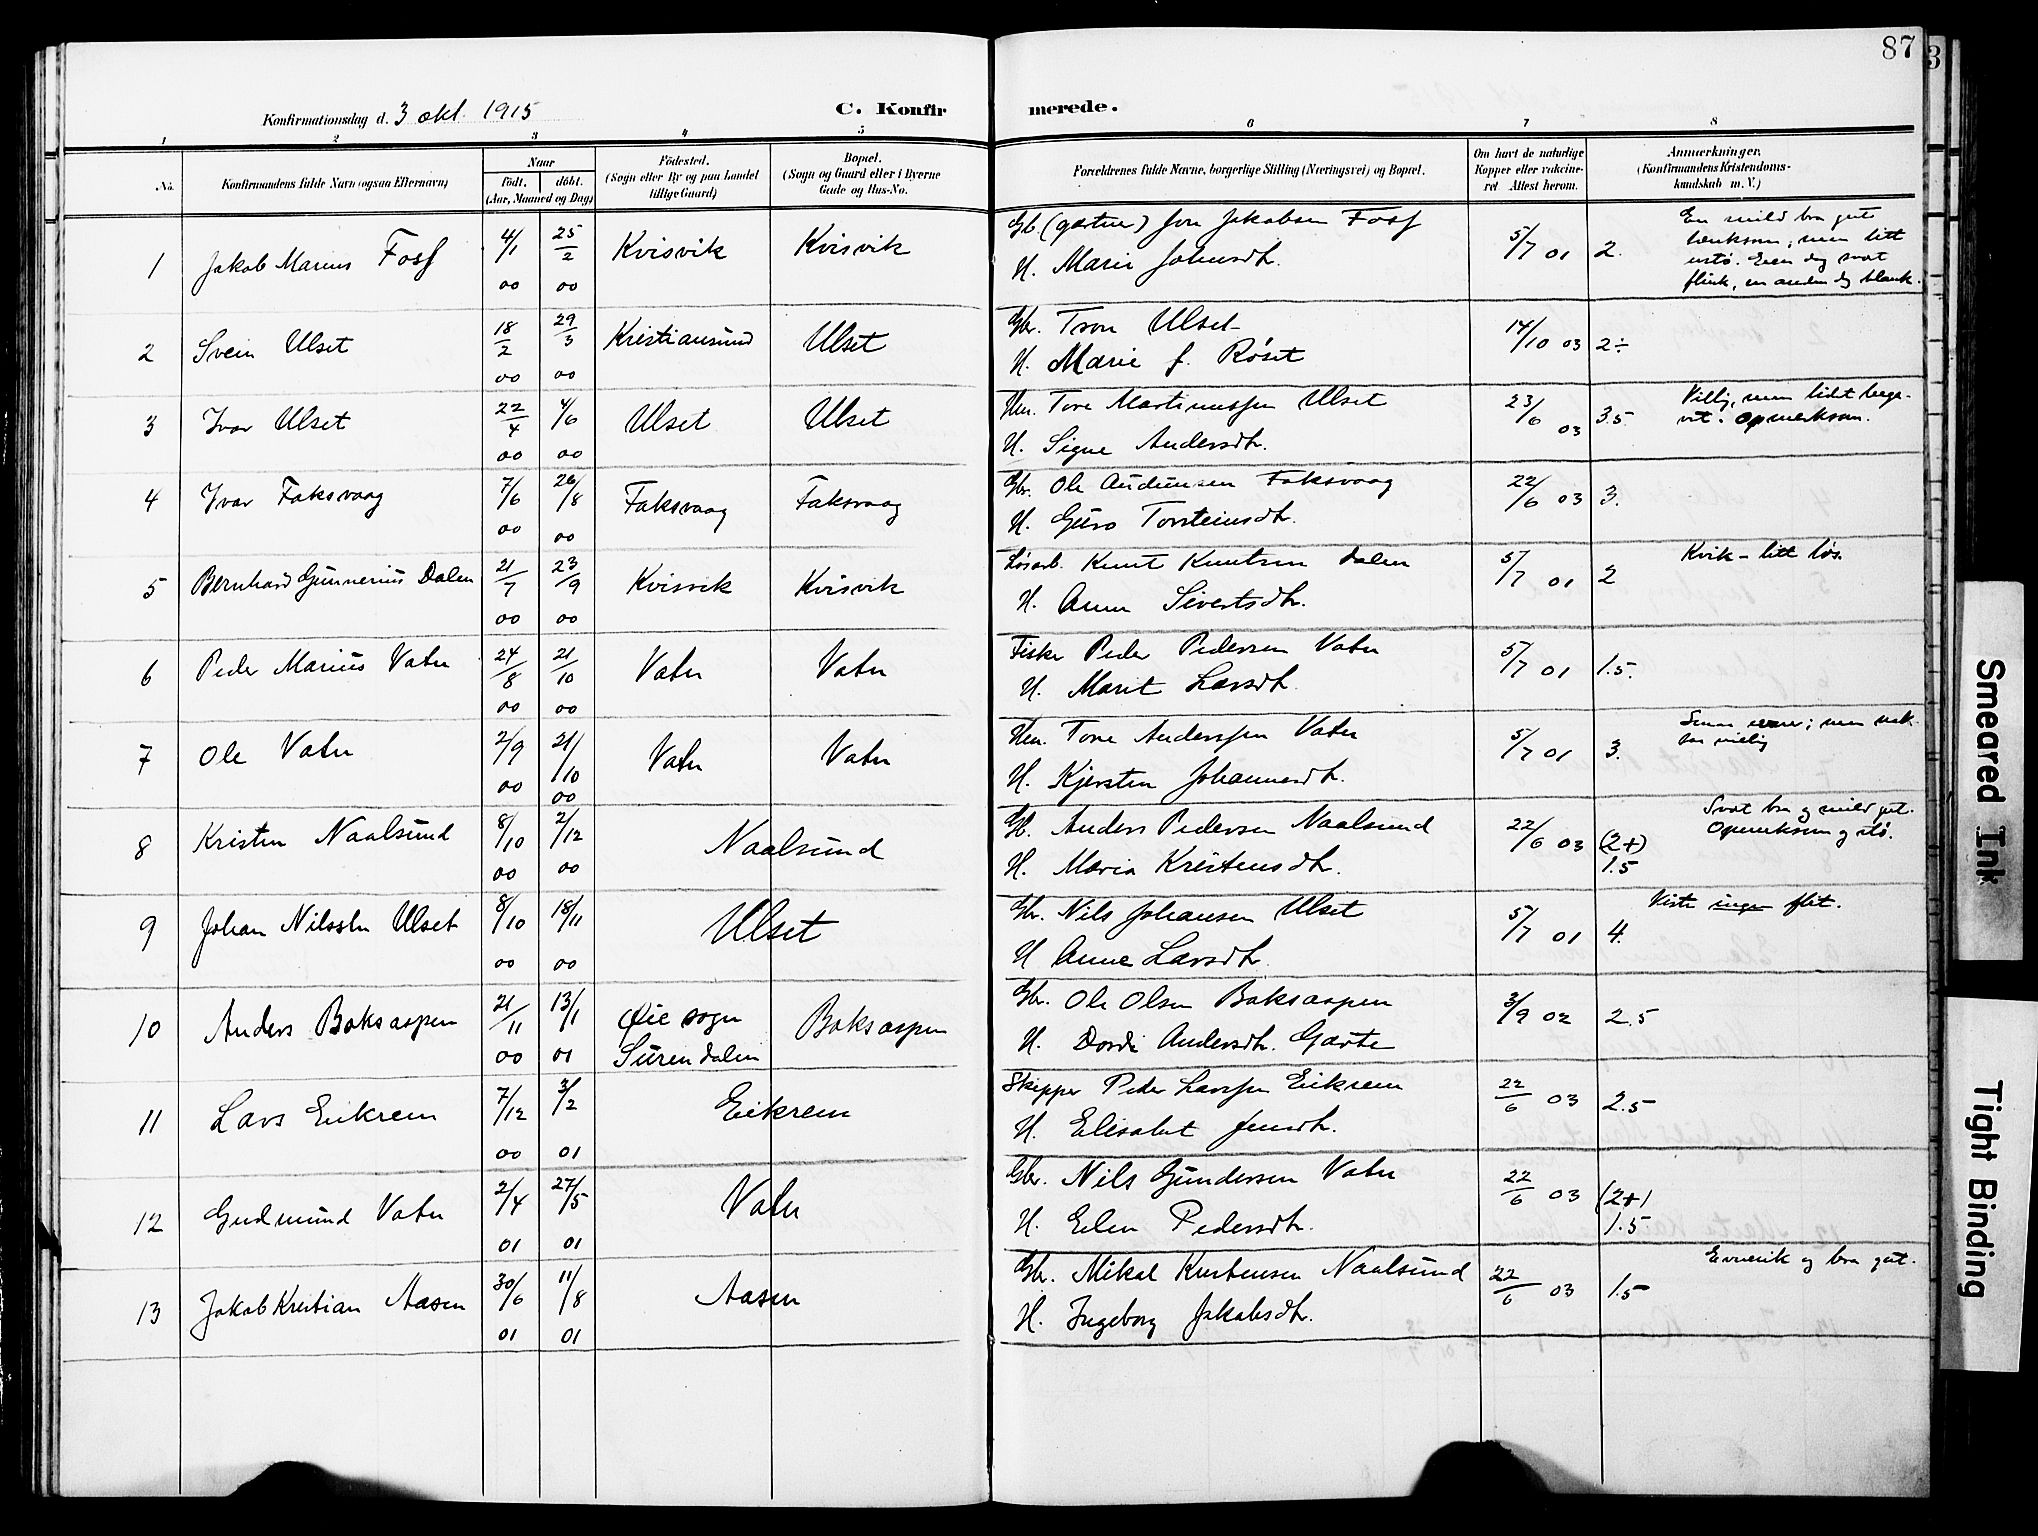 87
3
Konfirmationsdag d. 3 okt. 1915
C. Konfir
merede.
1 2 3 4 5 6 7 8
No.
Konfirmandens fulde Navn (ogsaa Efternavn)
Naar
födt.
döbt.
(Aar, Maaned og Dag)
Födested.
(Sogn eller By og paa Landet
tillige Gaard)
Bopæl.
(Sogn og Gaard eller i Byerne
Gade og Hus-No.
Forældrenes fulde Navne, borgerlige Stilling (Næringsvei) og Bopæl.
Om havt de naturlige
Kopper eller vaccine-
ret. Attest herom.
Anmærkninger.
(Konfirmandens Kristendoms-
kundskab m. V.)
1 Jakob Marius Foss 4/1 00 25/2 00 Kvisvik Kvisvik
Gb. (gartner) Jon Jakobsen Foss
H. Marie Johnsdt.
5/7 01 2.
En mild bra gut
tænksom, men litt
ustø. Een dag svært
flink, en anden dg blank.
2 Svein Ulset 18/2 00 29/3 00 Kristiansund Ulset
Gbr. Tron Ulset
H. Marie f. Røset
14/10 03 2÷
3 Ivar Ulset 22/4 00 4/6 00 Ulset Ulset
Hm. Tore Martinussen Ulset
H. Signe Andersdt.
23/6 03 3.5.
Villig, men lidt bega-
vet. Opmerksom.
4 Ivar Faksvaag 7/6 00 26/8 00 Faksvaag Faksvaag
Gbr. Ole Audunsen Faksvaag
H. Guro Torsteinsdt.
22/6 03 3.
5 Bernhard Gunnerius Dalen 21/7 00 23/9 00 Kvisvik Kvisvik
Løsarb. Knut Knutsen Dalen
H. Anne Sivertsdt.
5/7 01 2
Kvik - litt løs.
6 Peder Marius Vatn 24/8 00 21/10 00 Vatn Vatn
Fisker Peder Pedersen Vatn
H. Marit Larsdt.
5/7 01 1.5.
7 Ole Vatn 2/9 00 21/10 00 Vatn Vatn
Hm. Tore Anderssen Vatn
H. Kjersten Johannesdt.
5/7 01 3.
Smaa evner; men
villig
8 Kristen Naalsund 8/10 00 2/12 00 Naalsund
Gb. Anders Pedersen Naalsund
H. Maria Kristensdt.
22/6 03 (2+)
1.5
Svært bra og mild gut.
Opmerksom og stø.
9 Johan Nilssen Ulset 8/10 00 18/11 00 Ulset
Gbr. Nils Johansen Ulset
H Anne Larsdt.
5/7 01 4.
Viste ingen flit.
10 Anders Boksaspen 21/11 00 13/1 01 Øie sogn
Surendalen Boksaspen
Gbr. Ole Olsen Boksaspen
H. Dordi Andersdt. Garte
3/9 02 2.5
11 Lars Eikrem 7/12 00 3/2 01 Eikrem
Skipper Peder Larssen Eikrem
H. Elisabet Jensdt.
22/6 03 2.5
12 Gudmund Vatn 2/4 01 27/5 01 Vatn
Gbr. Nils Gundersen Vatn
H. Elen Pedersdt.
22/6 03 (2+)
1.5
13 Jakob Kristian Aasen 30/6 01 11/8 01 Aasen
Gbr. Mikal Kristensen Naalsund
H. Ingeborg Jakobsdt.
22/6 03 1.5
Evnerik og bra gut.
Smeared Ink
Tight Binding